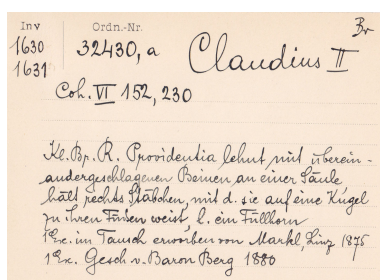 Inv Ordn.-Nr. Br
1630 32430, a Claudius II
1631
Coh. VI 152, 230
Kl. Br. R. Providentia lehnt mit überein-
andergeschlagenen Beinen an einer Säule
hält rechts Stäbchen, mit d. sie auf eine Kugel
zu ihren Füssen weist, l. ein Füllhorn
1 Ex. im Tausch erworben von Markl, Linz 1875
1 Ex. Gesch v. Baron Berg 1880